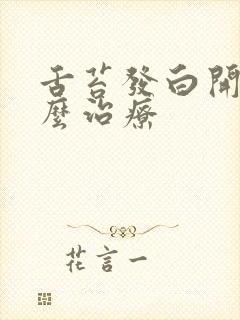 舌苔發白開
麼治療
花言一